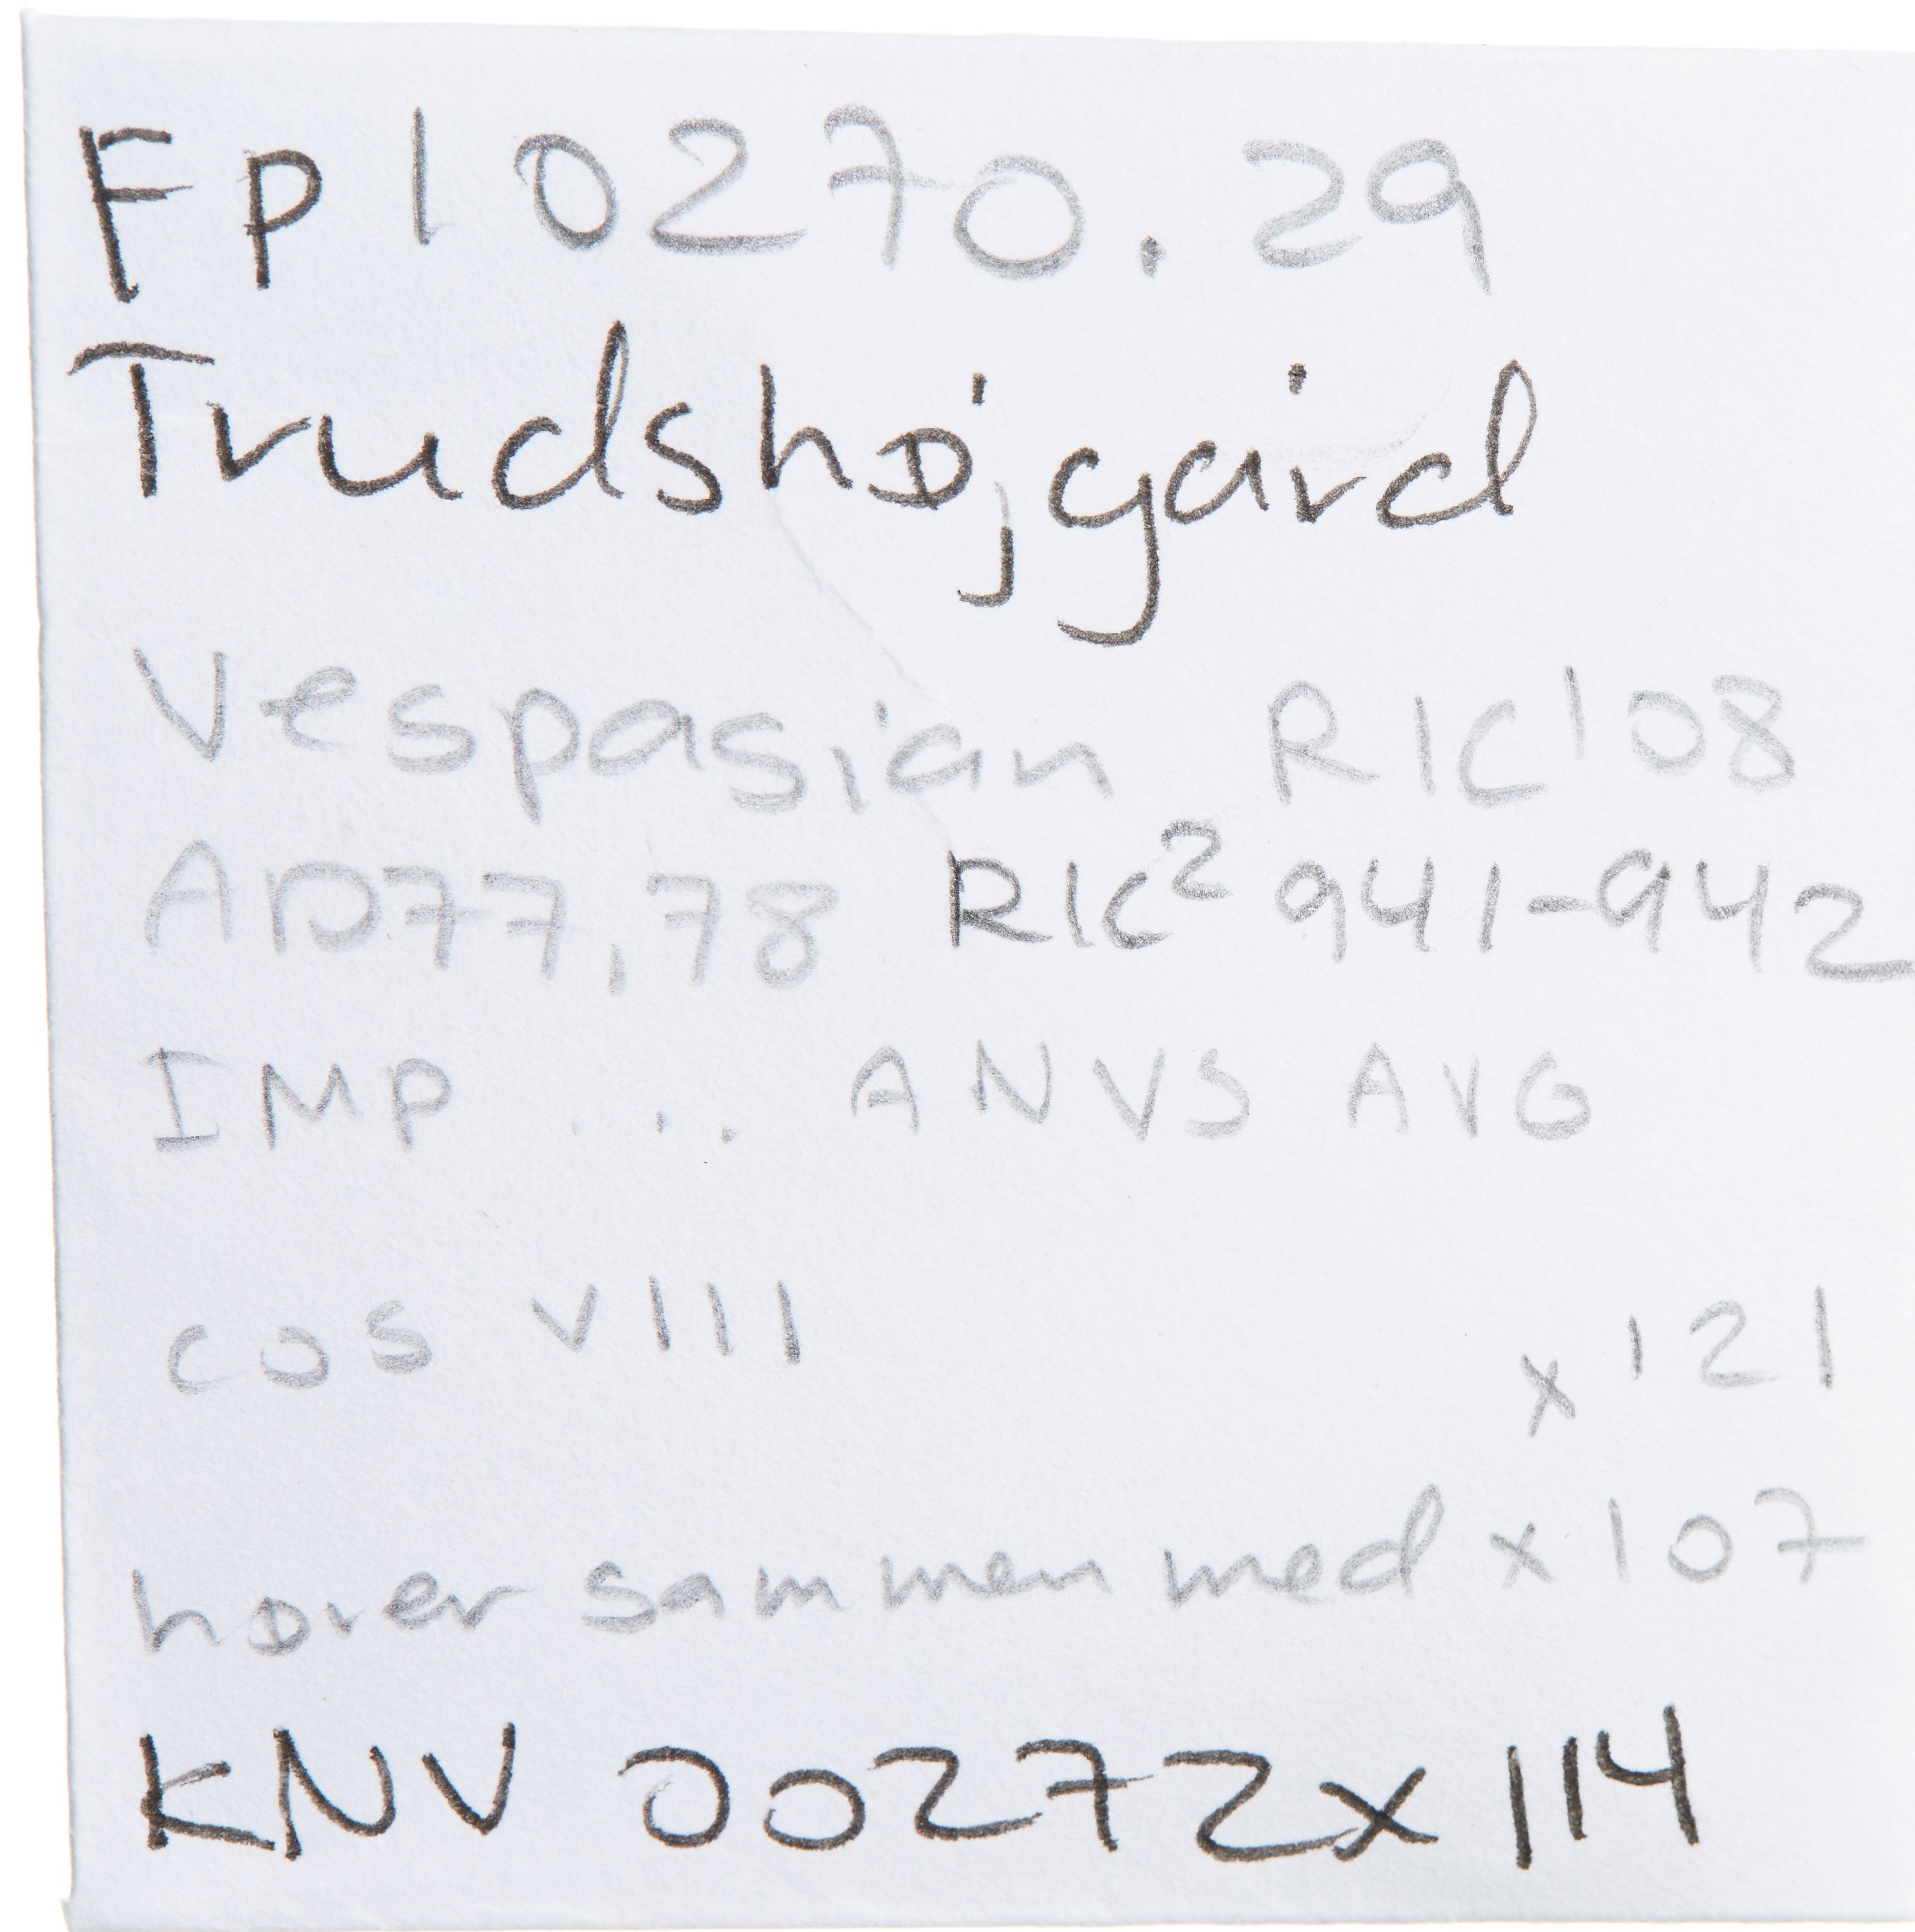 Fp 10270.29
Trudshøjgård
Vespasian RIC 108
AD77,78 RIC² 941-942
IMP ... ANVS AVG
COS VIII x 121
hører sammen med x 107
KNV 00272x114